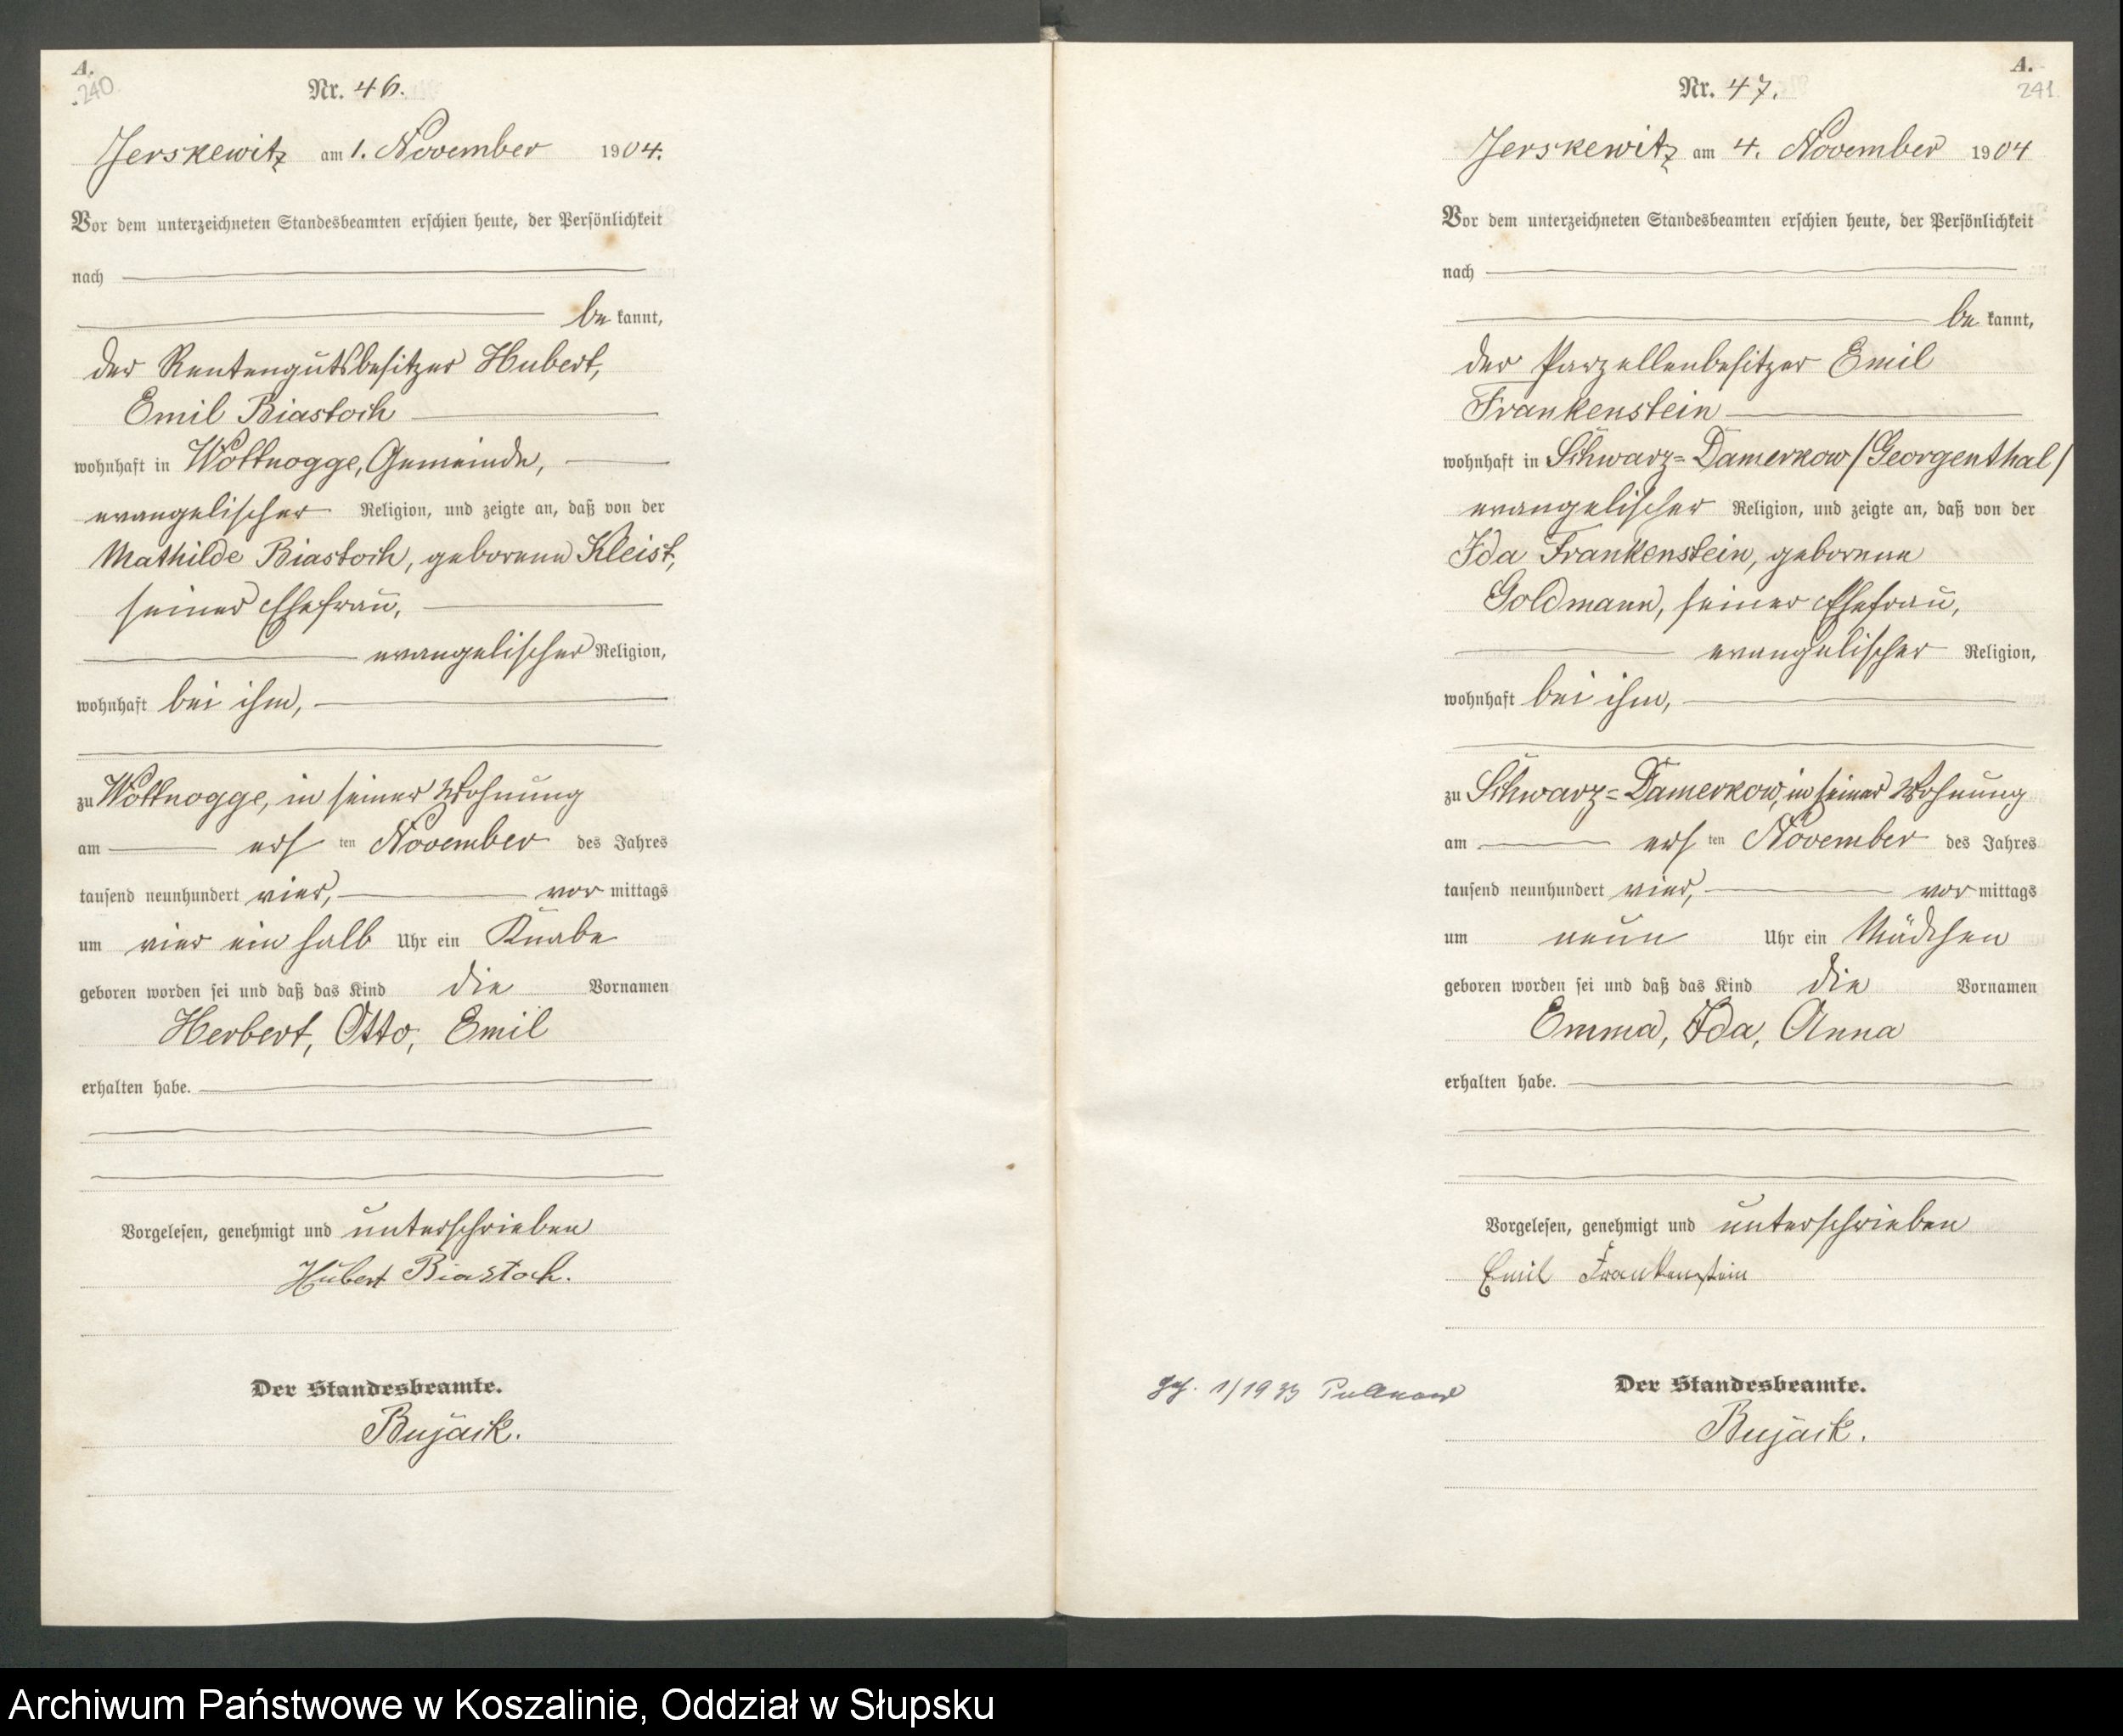 A.
240
Nr. 46.
Jerskewitz am 1. November 1904.
Vor dem unterzeichneten Standesbeamten erschien heute, der Persönlichkeit
nach
be kannt,
der Rentengutsbesitzer Hubert,
Emil Biastoch
wohnhaft in Wottnogge, Gemeinde,
evangelischer Religion, und zeigte an, daß von der
Mathilde Biastoch, geborene Kleist,
seiner Ehefrau,
evangelischer Religion,
wohnhaft bei ihm,
zu Wottnogge, in seiner Wohnung
am ersten November des Jahres
tausend neunhundert vier, vor mittags
um vier ein halb Uhr ein Knabe
geboren worden sei und daß das Kind die Vornamen
Herbert, Otto, Emil
erhalten habe.
Vorgelesen, genehmigt und unterschrieben
Hubert Biastoch.
Der Standesbeamte.
Bujack.
A.
241
Nr. 47.
Jerskewitz am 4. November 1904
Vor dem unterzeichneten Standesbeamten erschien heute, der Persönlichkeit
nach
be kannt,
der Parzellenbesitzer Emil
Frankenstein
wohnhaft in Schwarz=Damerkow /Georgenthal/
evangelischer Religion, und zeigte an, daß von der
Ida Frankenstein, geborene
Goldmann, seiner Ehefrau,
evangelischer Religion,
wohnhaft bei ihm,
zu Schwarz=Damerkow, in seiner Wohnung
am ersten November des Jahres
tausend neunhundert vier, vor mittags
um neun Uhr ein Mädchen
geboren worden sei und daß das Kind die Vornamen
Emma, Ida, Anna
erhalten habe.
Vorgelesen, genehmigt und unterschrieben
Emil Frankenstein
Der Standesbeamte.
1/1933
Bujack.
Archiwum Państwowe w Koszalinie, Oddział w Słupsku